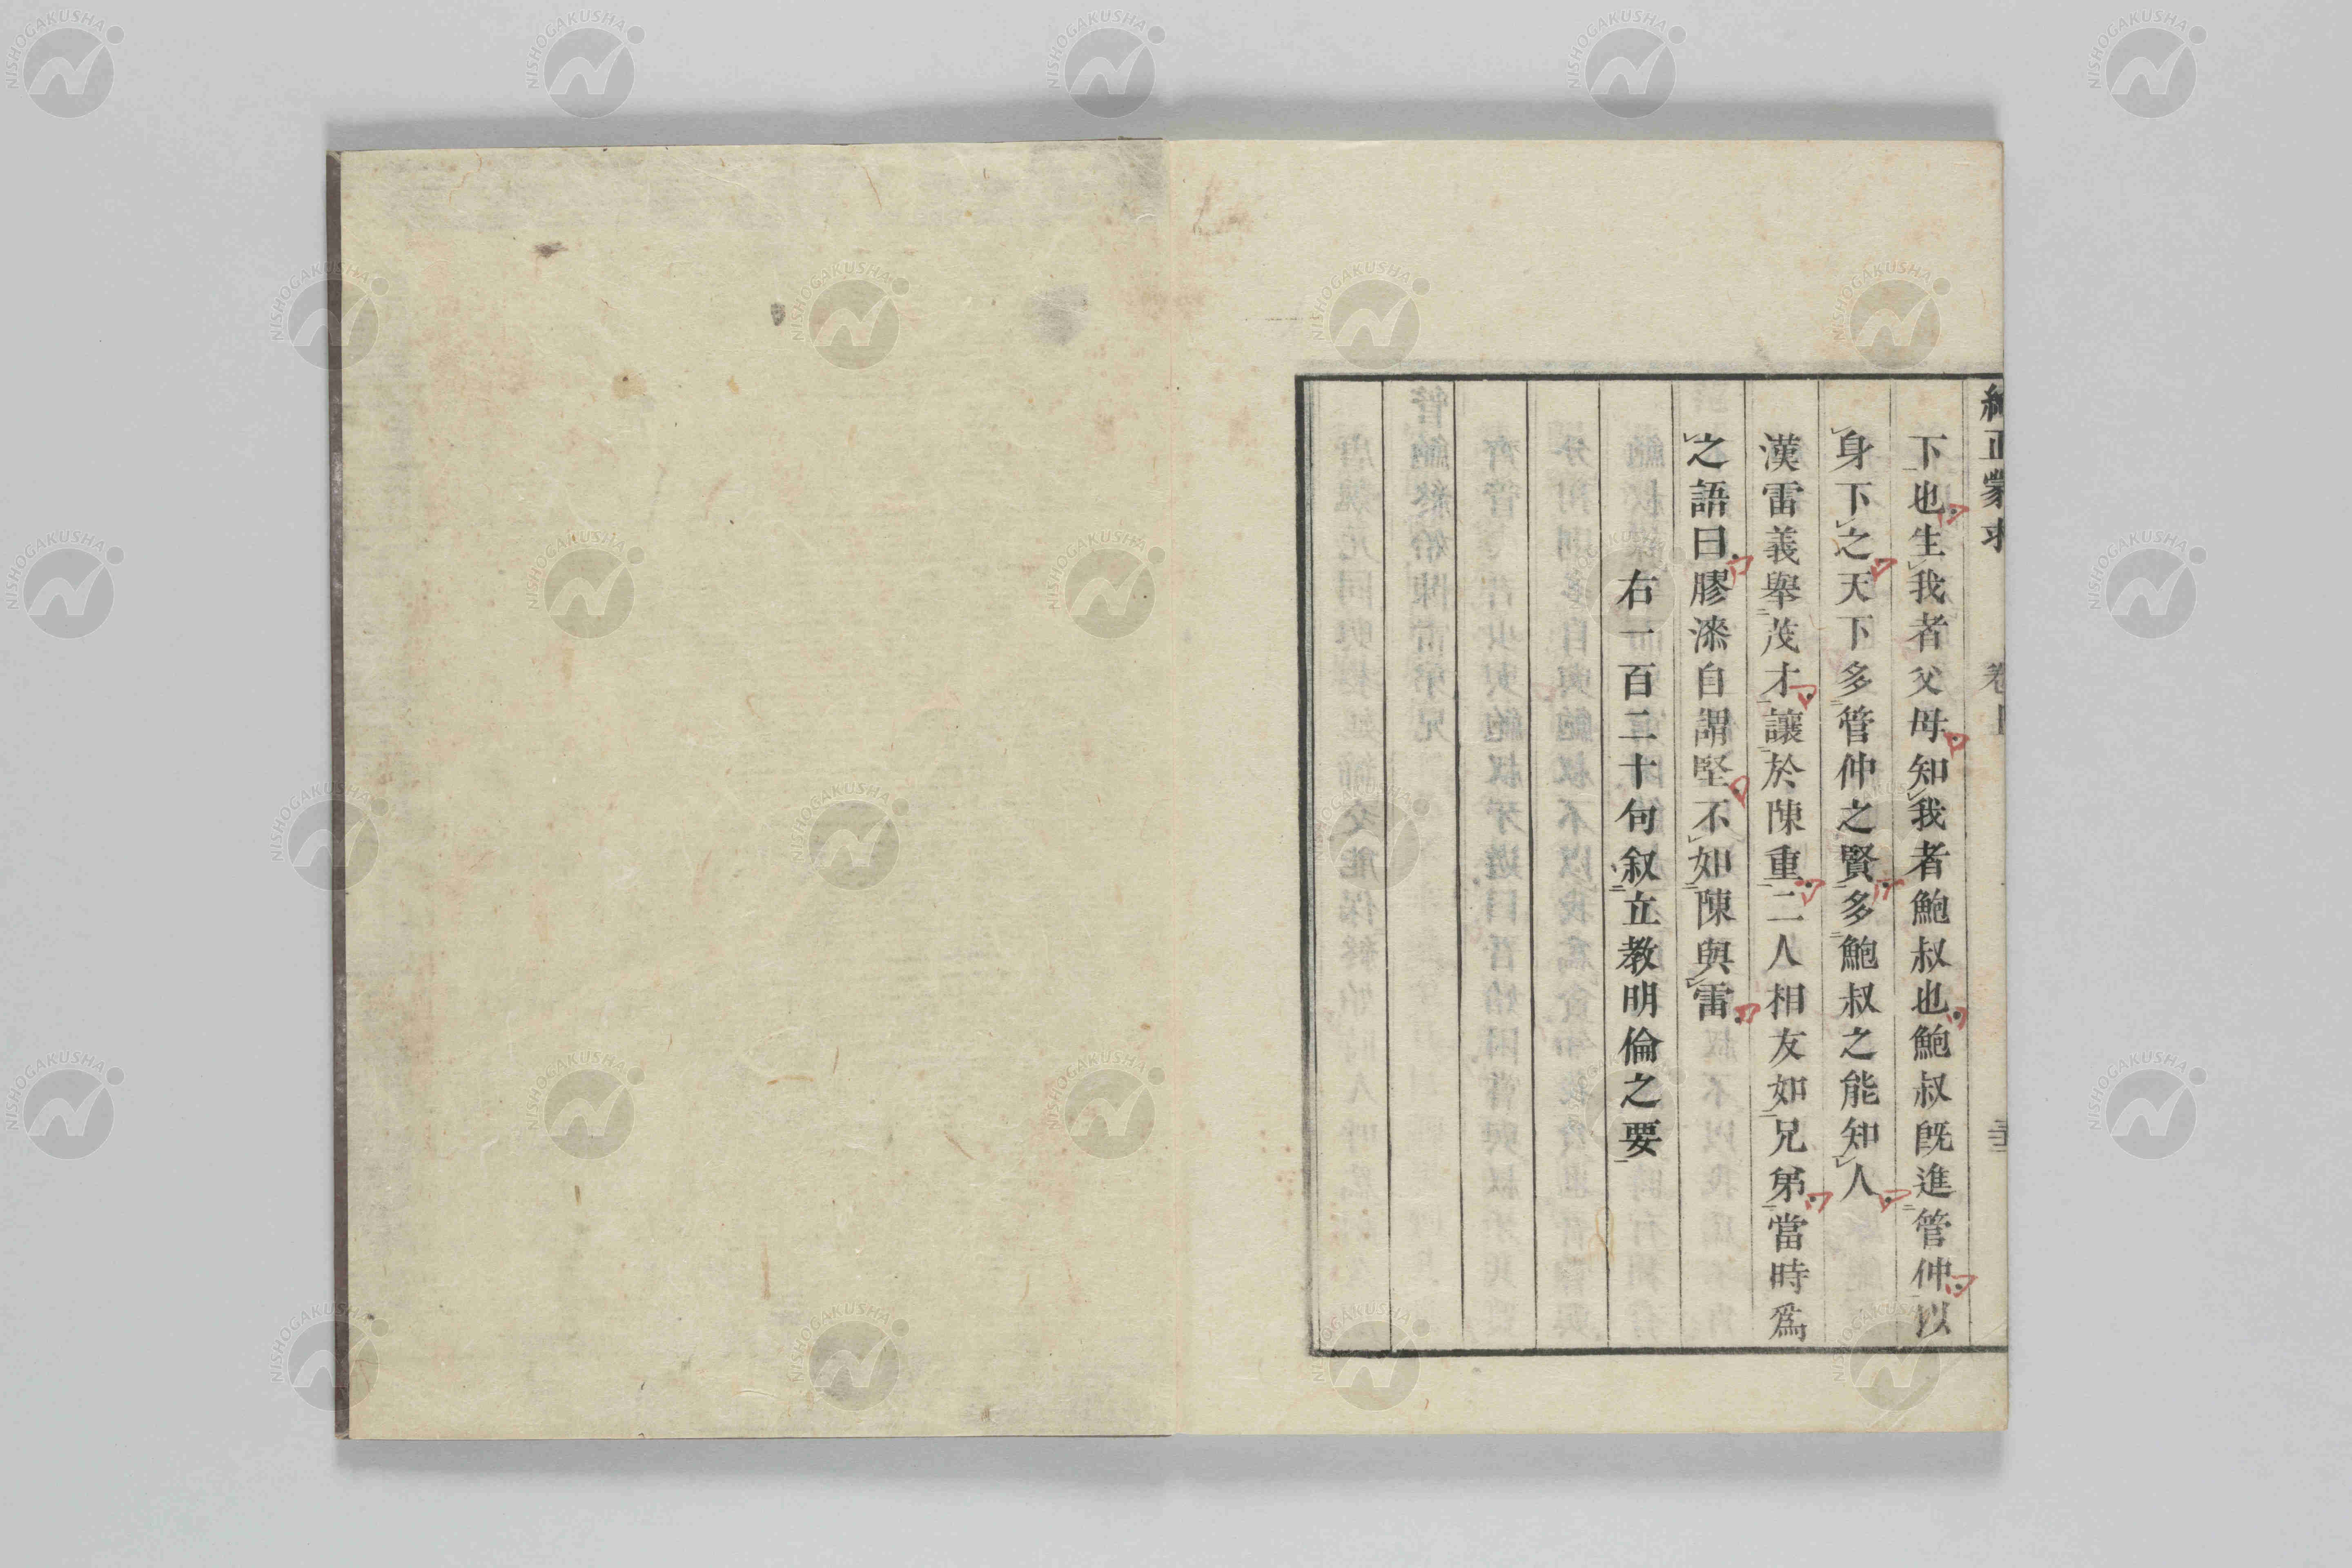 純正蒙求
下也生我者父母知我者鮑叔也鮑叔旣進管仲以
身下之天下多管仲之賢多鮑叔之能知人
漢雷義擧茂才讓於陳重二人相友如兄弟當時爲
之語曰膠漆自謂堅不如陳與雷
右一百二十句叙立教明倫之要
NISHOGAKUSHA